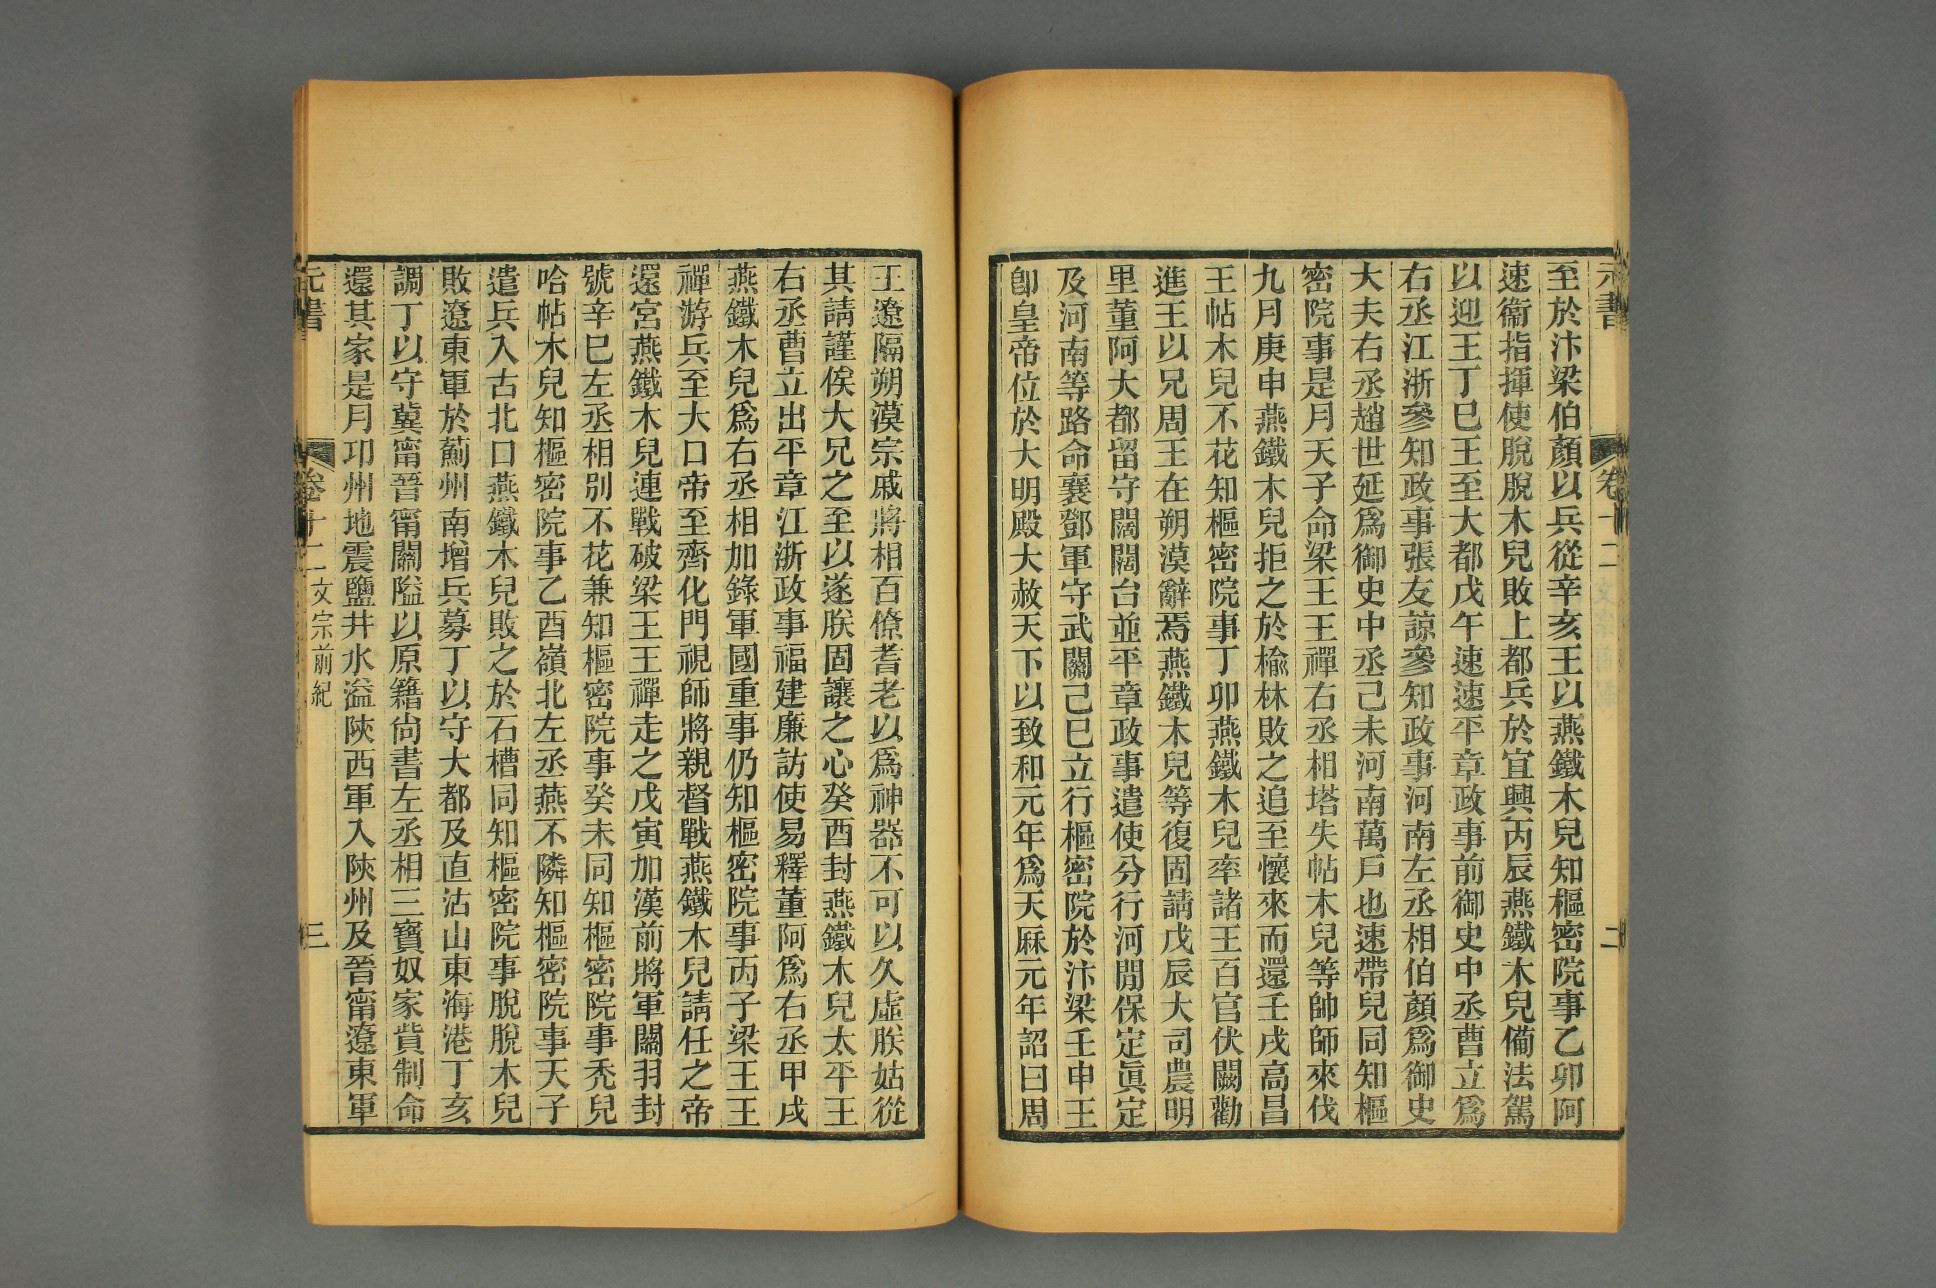 元書
卷十二
二
至於汴梁伯顏以兵從辛亥王以燕鐵木兒知樞密院事乙卯阿
速衞指揮使脫脫木兒敗上都兵於宜興丙辰燕鐵木兒備法駕
以迎王丁巳王至大都戊午速速平章政事前御史中丞曹立爲
右丞江浙參知政事張友諒參知政事河南左丞相伯顏爲御史
大夫右丞趙世延爲御史中丞己未河南萬戶也速帶兒同知樞
密院事是月天子命梁王王禪右丞相塔失帖木兒等帥師來伐
九月庚申燕鐵木兒拒之於榆林敗之追至懷來而還壬戌高昌
王帖木兒不花知樞密院事丁卯燕鐵木兒率諸王百官伏闕勸
進王以兄周王在朔漠辭焉燕鐵木兒等復固請戊辰大司農明
里董阿大都留守闊闊台並平章政事遣使分行河閒保定眞定
及河南等路命襄鄧軍守武關己巳立行樞密院於汴梁壬申王
卽皇帝位於大明殿大赦天下以致和元年爲天厤元年詔曰周
王遼隔朔漠宗戚將相百僚耆老以爲神器不可以久虛朕姑從
其請謹俟大兄之至以遂朕固讓之心癸酉封燕鐵木兒太平王
右丞曹立出平章江浙政事福建廉訪使易釋董阿爲右丞甲戌
燕鐵木兒爲右丞相加錄軍國重事仍知樞密院事丙子梁王王
禪游兵至大口帝至齊化門視師將親督戰燕鐵木兒請任之帝
還宮燕鐵木兒連戰破梁王王禪走之戊寅加漢前將軍關羽封
號辛巳左丞相別不花兼知樞密院事癸未同知樞密院事禿兒
哈帖木兒知樞密院事乙酉嶺北左丞燕不隣知樞密院事天子
遣兵入古北口燕鐵木兒敗之於石槽同知樞密院事脫脫木兒
敗遼東軍於薊州南增兵募丁以守大都及直沽山東海港丁亥
調丁以守冀甯晉甯關隘以原籍尙書左丞相三寶奴家貲制命
還其家是月邛州地震鹽井水溢陝西軍入陝州及晉甯遼東軍
元書
卷十二文宗前紀
三